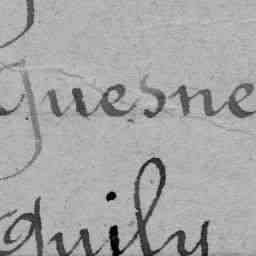 quesne
quily